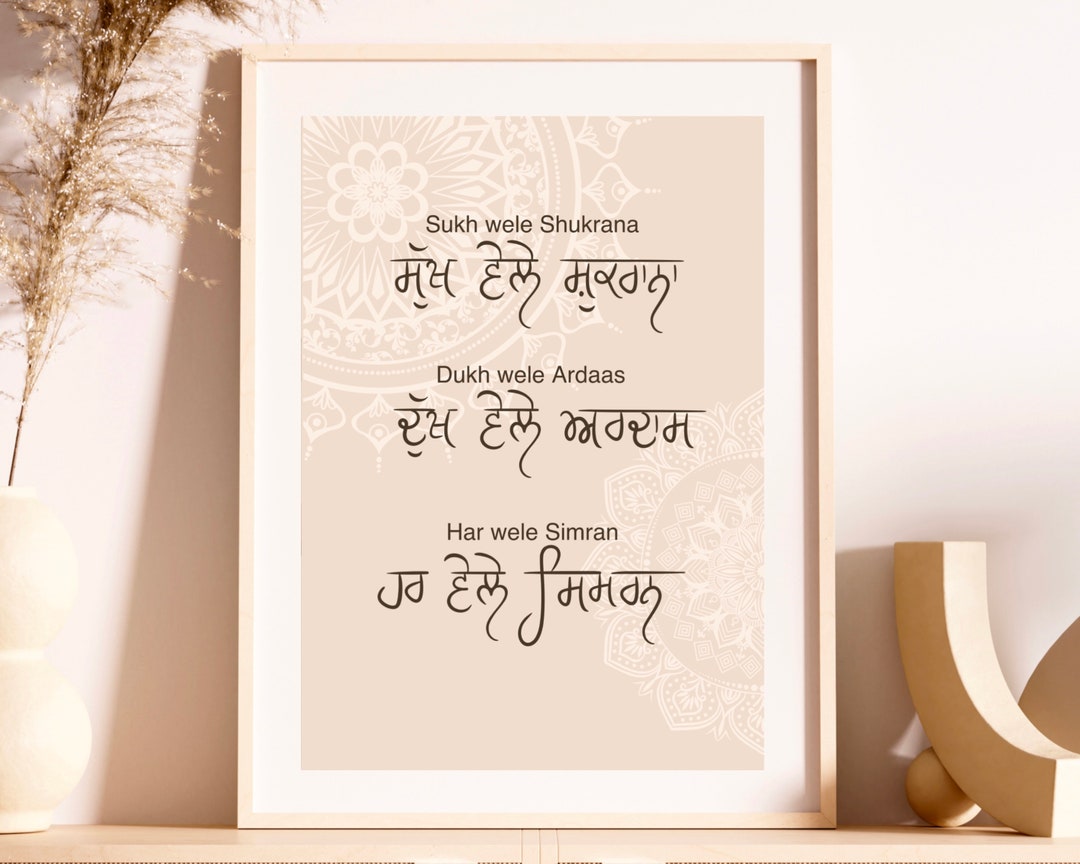 Sukh wele Shukrana
ਸੁੱਖ ਵੇਲੇ ਸ਼ੁਕਰਾਨਾ
Dukh wele Ardaas
ਦੁੱਖ ਵੇਲੇ ਅਰਦਾਸ
Har wele Simran
ਹਰ ਵੇਲੇ ਸਿਮਰਨ